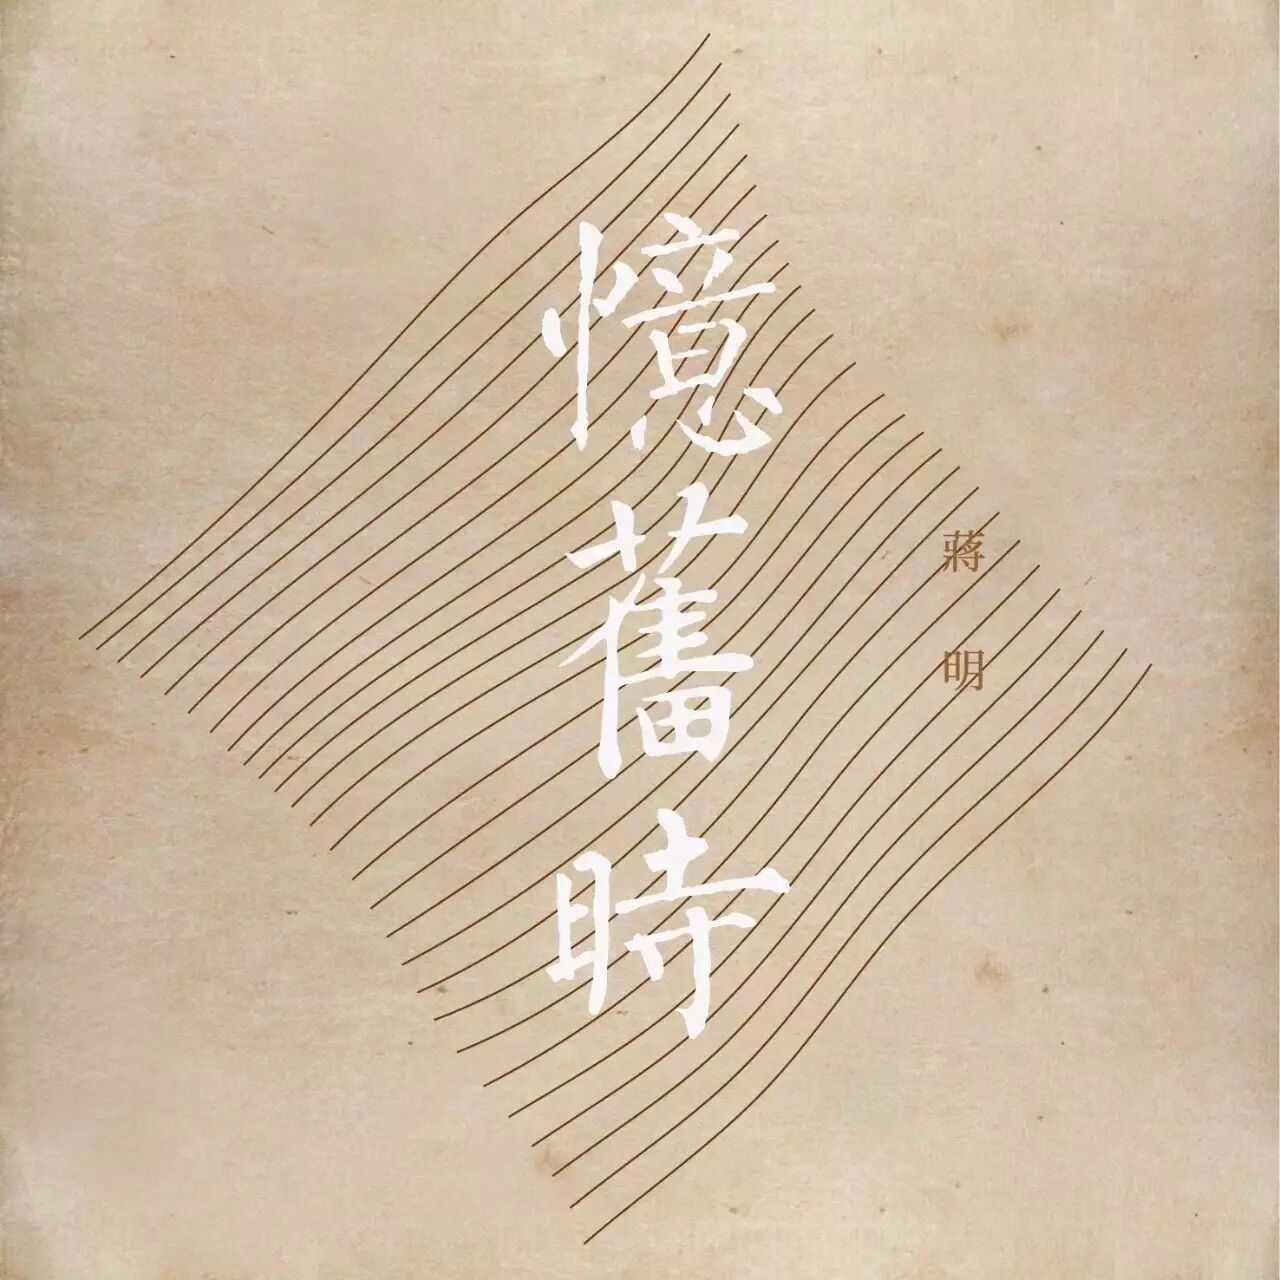 憶舊時
蔣明